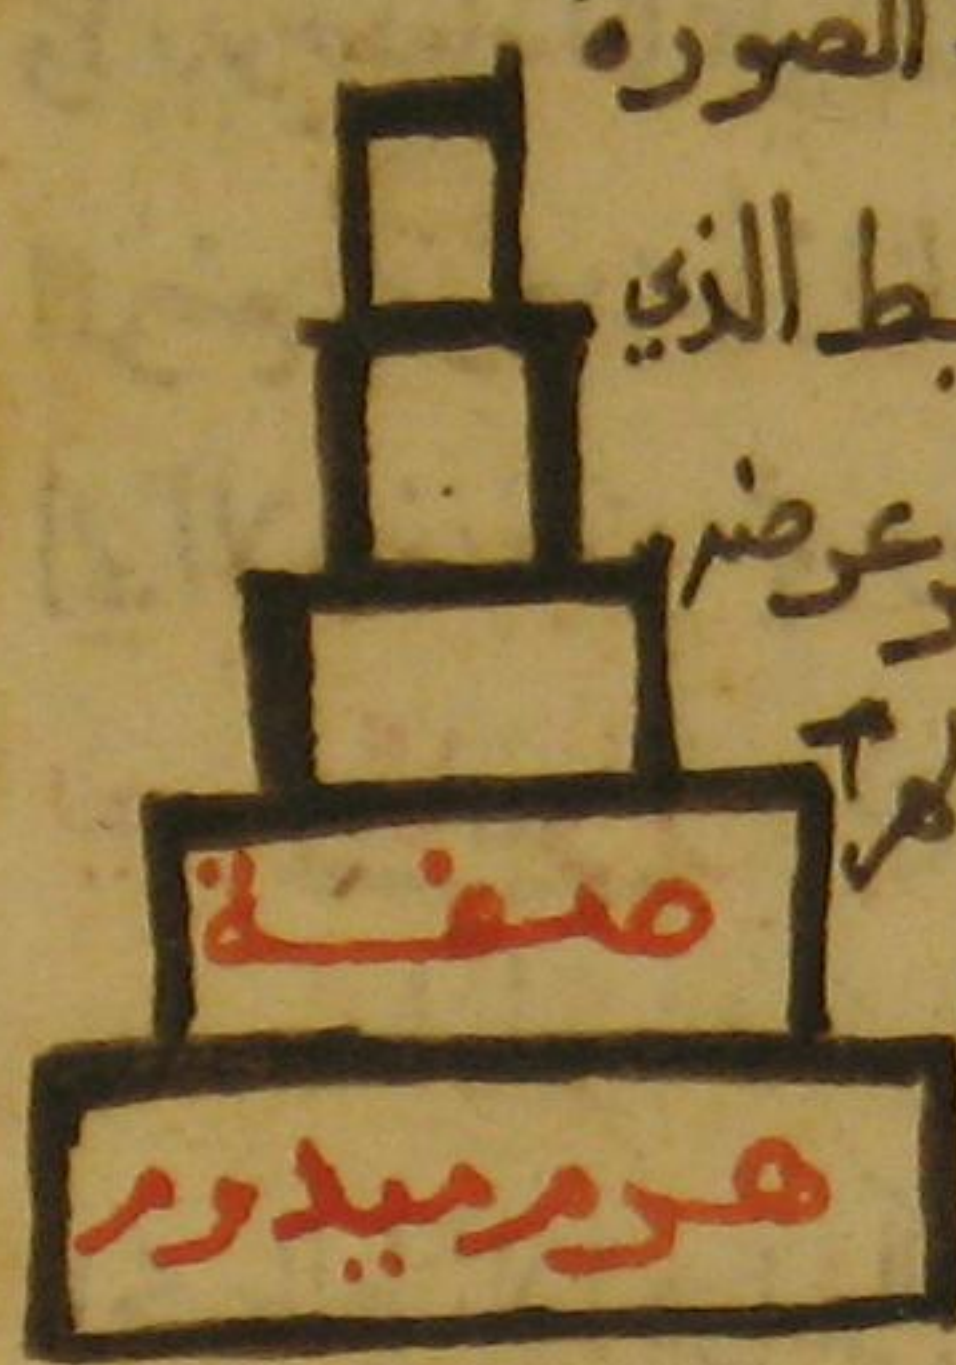 الصورة
الذي
عرضه
صفة
هرم ميدوم